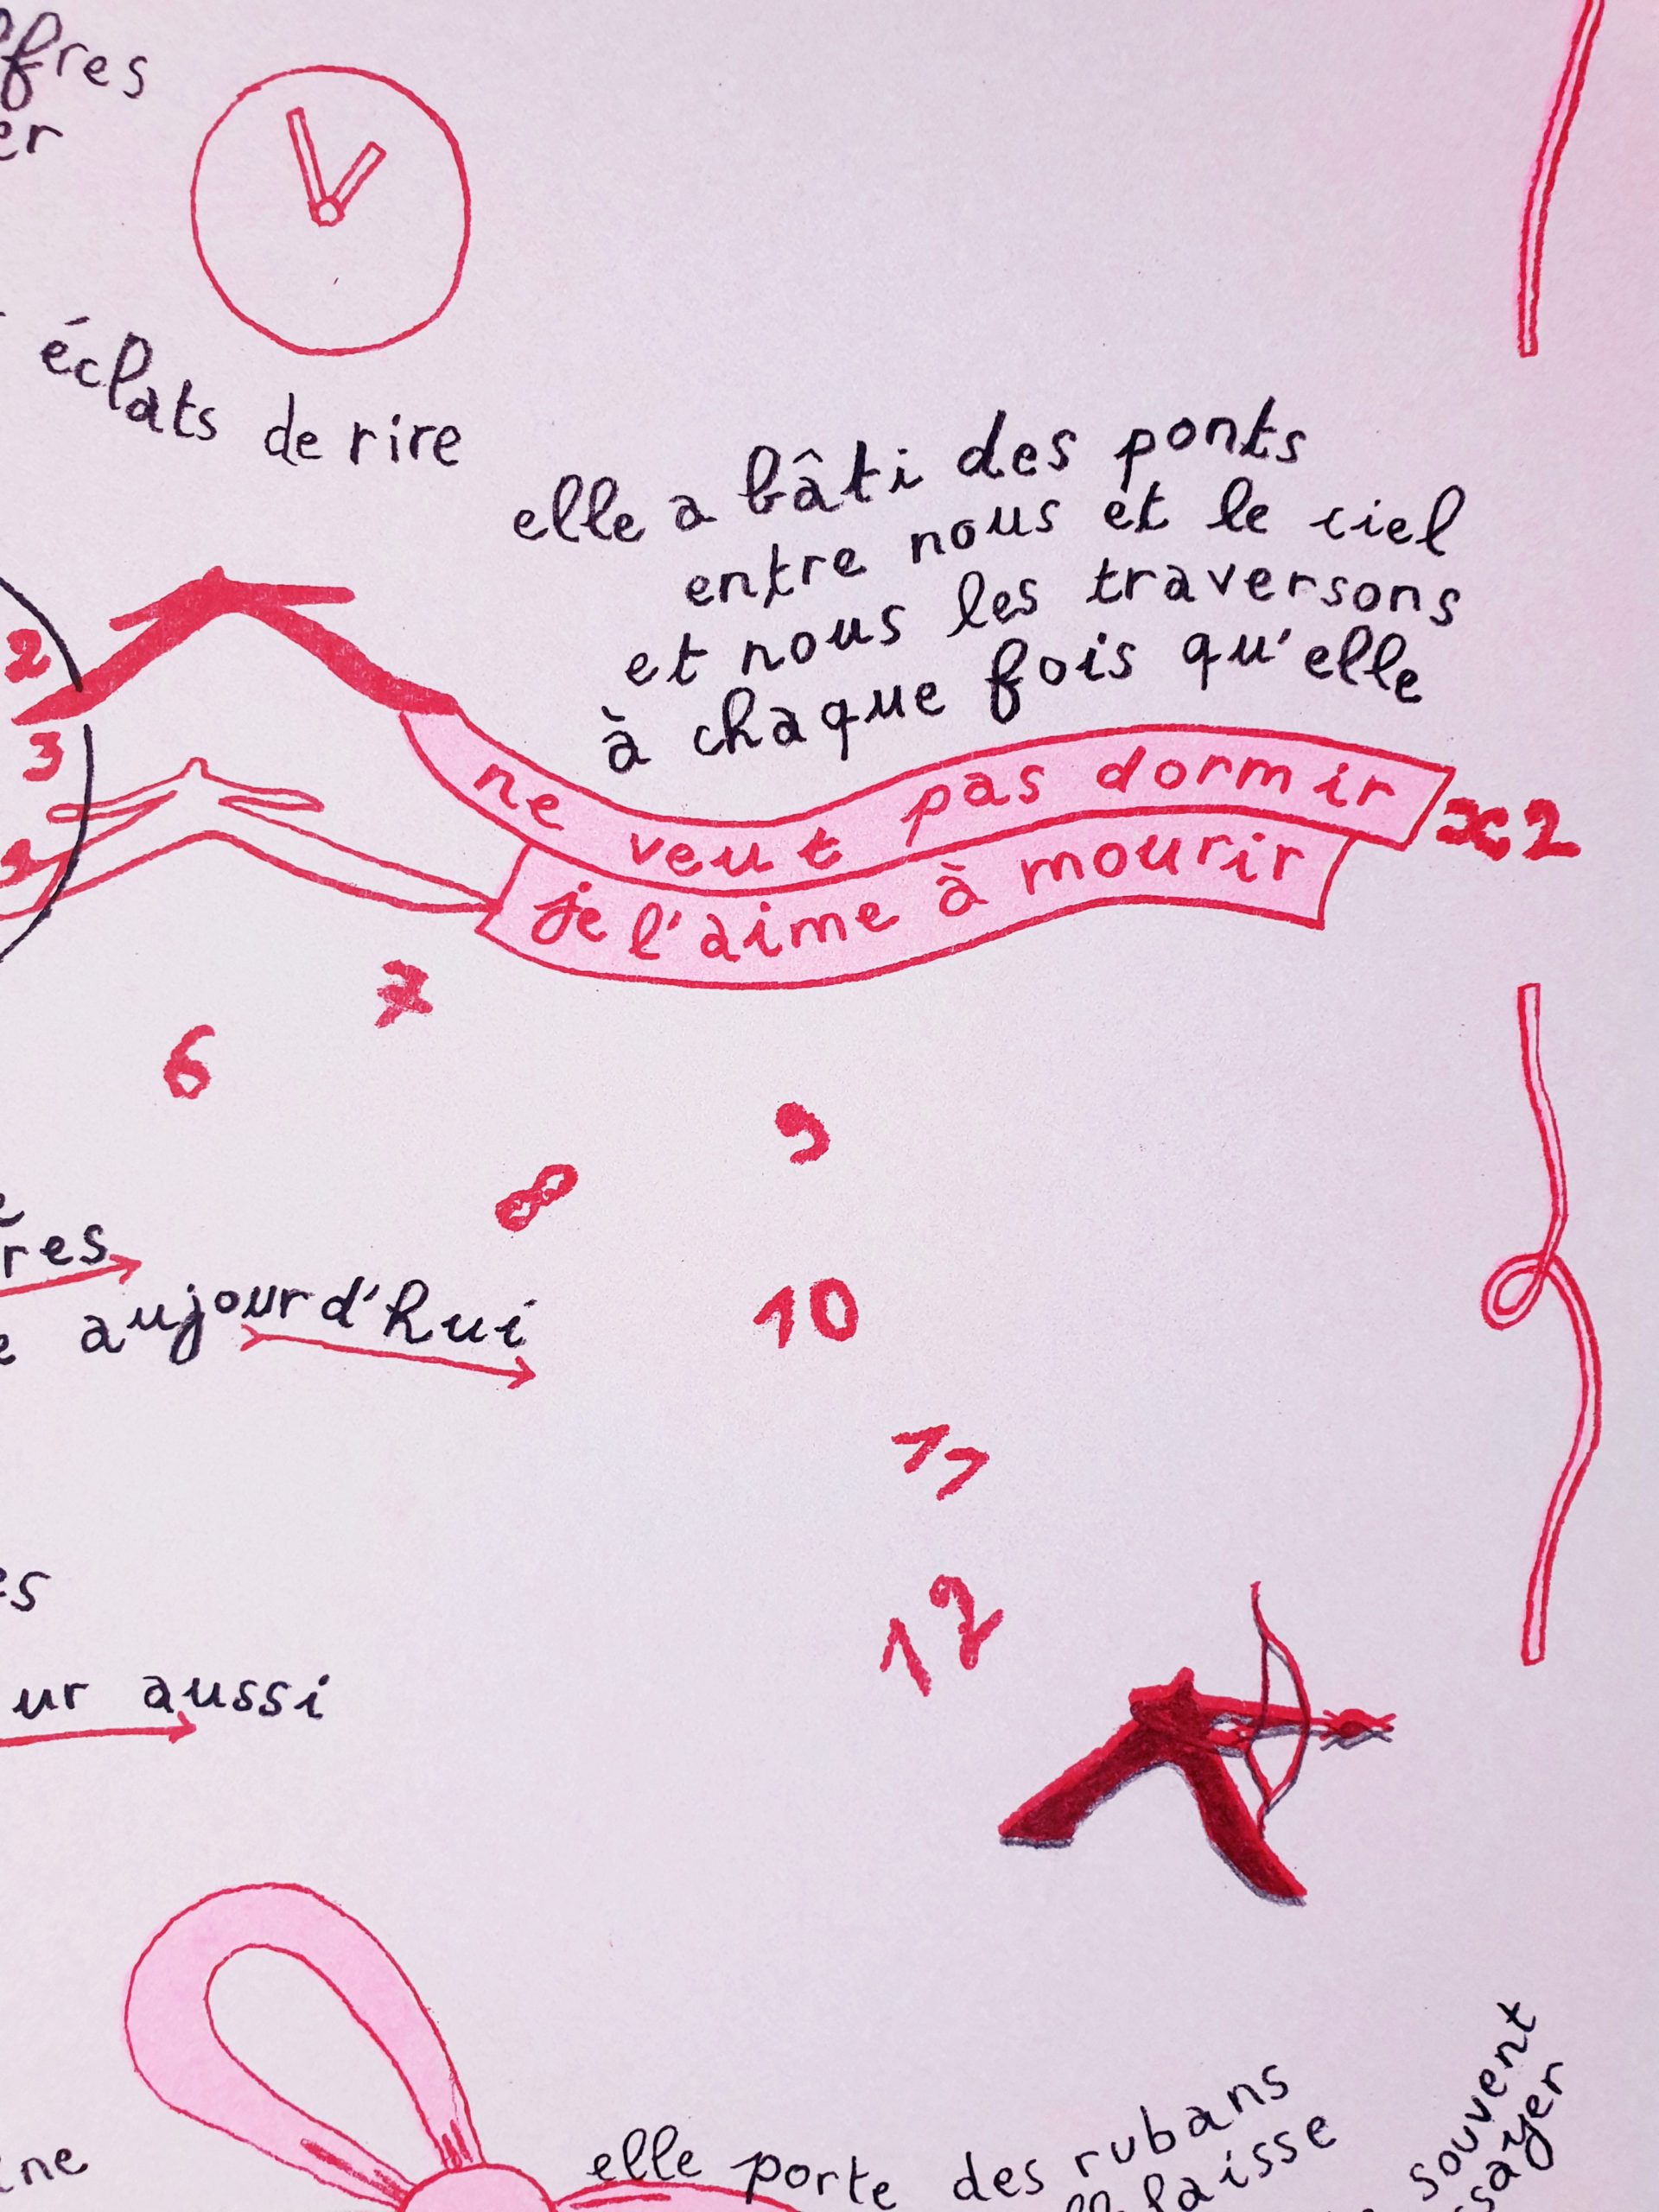 éclats de rire
elle a bâti des ponts
entre nous et le ciel
et nous les traversons
à chaque fois qu'elle
ne veut pas dormir
x2
je l'aime à mourir
2
3
7
6
9
8
10
11
12
aujourd'hui
aussi
elle porte des rubans
laisse
souvent